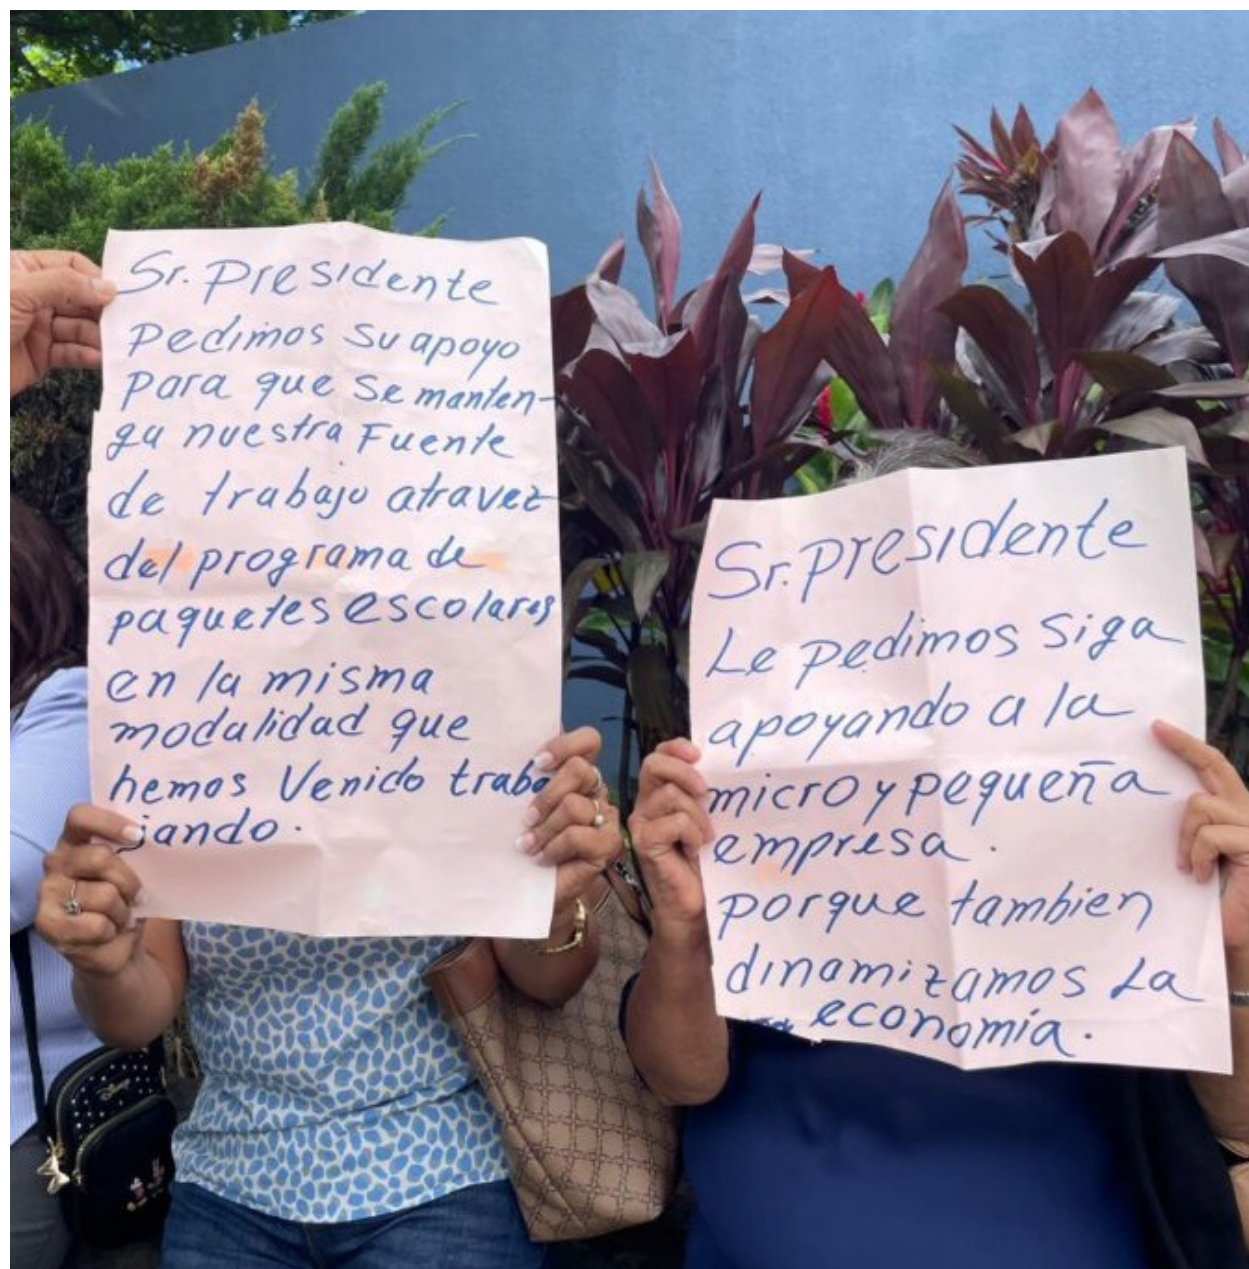 Sr. Presidente
Pedimos su apoyo
Para que se manten-
ga nuestra Fuente
de trabajo atravez
del programa de
paquetes escolares
en la misma
modalidad que
hemos Venido traba
jando.
Sr. Presidente
Le pedimos siga
apoyando a la
micro y pequeña
empresa.
porque tambien
dinamizamos La
economía.